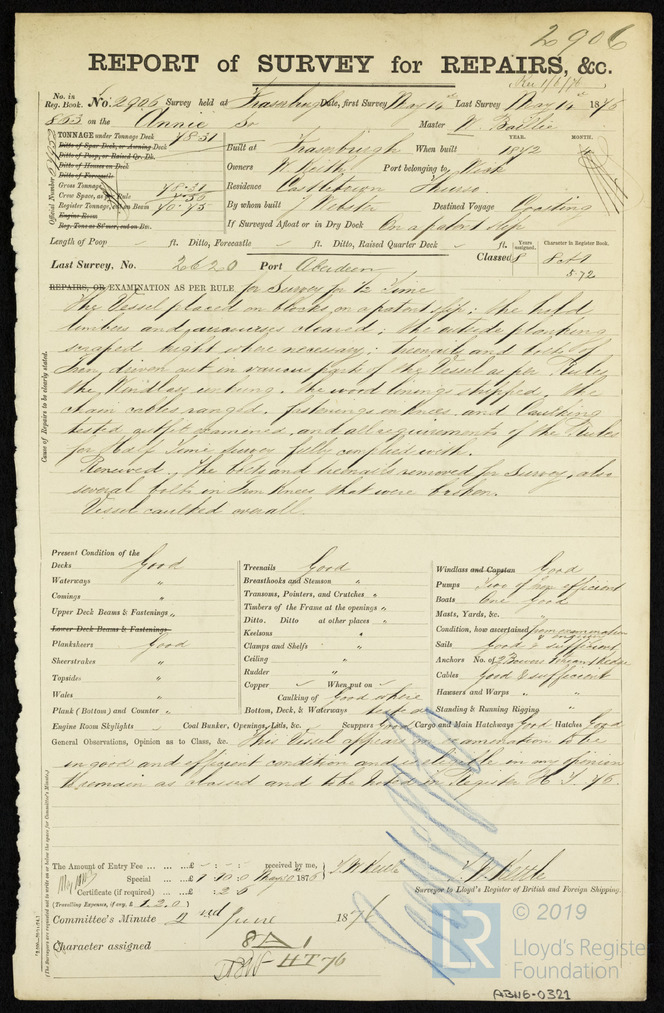 2906
REPORT of SURVEY for REPAIRS, &c.
No. in Reg. Book. No. 2906 Survey held at Fraserburgh Date, first Survey May 14th Last Survey May 14th 1876
863 on the Annie Sr Master W. Baillie
TONNAGE under Tonnage Deck 48.31
Ditto of Spar Deck, or Awning Deck
Ditto of Poop, or Raised Qr. Dk.
Ditto of Houses on Deck
Ditto of Forecastle
Gross Tonnage 48.31
Crew Space, as per Rule
Register Tonnage, cut on Beam 40.75
Engine Room
Reg. Tons as St'mer, cut on Bm.
Official Number
Built at Fraserburgh When built YEAR. 1872 MONTH.
Owners W. Keith Port belonging to Wick
Residence Castletown Thurso
By whom built J Webster Destined Voyage Coasting
If Surveyed Afloat or in Dry Dock On a patent slip
Length of Poop ft. Ditto, Forecastle ft. Ditto, Raised Quarter Deck ft.
Years assigned. Character in Register Book.
Classed 8 8 A 1
5.72
Last Survey, No. 2620 Port Aberdeen
REPAIRS, OR EXAMINATION AS PER RULE for Survey for ½ Time
Cause of Repairs to be clearly stated.
The Vessel placed on blocks, on a patent slip; the hold
limbers and air courses cleared; the outside planking
scraped bright where necessary; treenails and bolts of
Iron, driven out in various parts of the Vessel as per Rules,
the Windlass unhung. the wood linings stripped. the
chain cables ranged. fastenings on knees and Caulking
tested, outfit examined, and all requirements of the Rules
for Half Time Survey fully complied with.
Renewed, The bolts and treenails removed for Survey, also
several bolts in Iron knees that were broken.
Vessel caulked overall.
Present Condition of the
Decks Good
Waterways "
Comings "
Upper Deck Beams & Fastenings "
Lower Deck Beams & Fastenings
Planksheers Good
Sheerstrakes "
Topsides "
Wales "
Plank (Bottom) and Counter "
Treenails Good
Breasthooks and Stemson "
Transoms, Pointers, and Crutches "
Timbers of the Frame at the openings "
Ditto. Ditto at other places "
Keelsons "
Clamps and Shelfs "
Ceiling "
Rudder "
Copper When put on
Caulking of Good where
Bottom, Deck, & Waterways tested
Windlass and Capstan Good
Pumps Two of Iron efficient
Boats One Good
Masts, Yards, &c. "
Condition, how ascertained from examination
Sails Good & sufficient
Anchors No. of 2 Bowers
Cables Good & sufficient
Hawsers and Warps "
Standing & Running Rigging "
Engine Room Skylights Coal Bunker, Openings, Lids, &c. Scuppers Good Cargo and Main Hatchways Good Hatches Good
General Observations, Opinion as to Class, &c. This Vessel appears on examination to be
in good and efficient condition and is eligible in my opinion
to remain as classed and to be noted in Register H.T. 76.
The Amount of Entry Fee ... ... £ - : - : - received by me,
Special ... ... £ 1.10.0 1876
Certificate (if required) ... :2.6
(Travelling Expenses, if any, £ 1.2.0)
Surveyor to Lloyd's Register of British and Foreign Shipping.
Committee's Minute 2nd June 1876
Character assigned 8 A 1
HT 76
© 2019
LR
Lloyd's Register
Foundation
AB116-0321